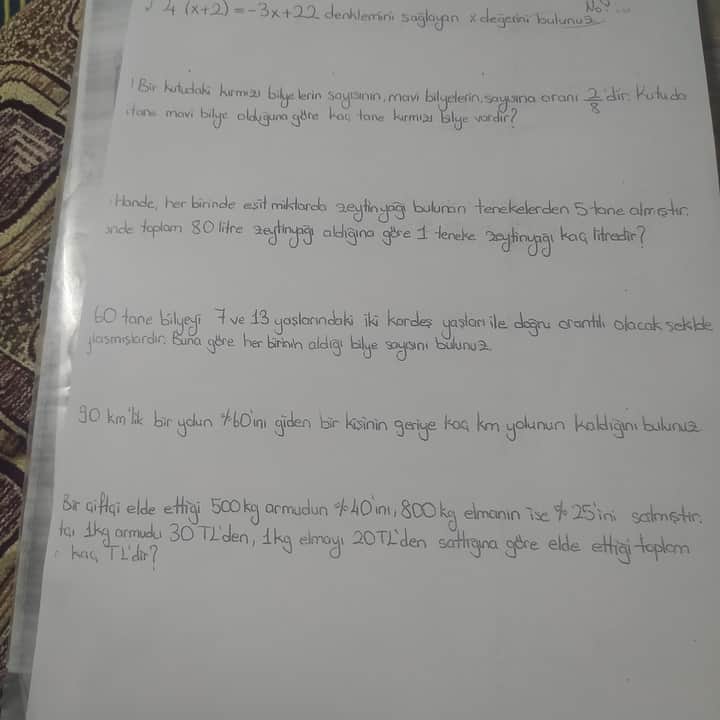 No: ...
4 (x+2) = -3x+22 denklemini sağlayan x değerini bulunuz.
Bir kutudaki kırmızı bilyelerin sayısının, mavi bilyelerin sayısına oranı 2/8 'dir. Kutuda
tane mavi bilye olduğuna göre kaç tane kırmızı bilye vardır?
Hande, her birinde eşit miktarda zeytinyağı bulunan tenekelerden 5 tane almıştır.
toplam 80 litre zeytinyağı aldığına göre 1 teneke zeytinyağı kaç litredir?
60 tane bilyeyi 7 ve 13 yaşlarındaki iki kardeş yaşları ile doğru orantılı olacak şekilde
laşmışlardır. Buna göre her birinin aldığı bilye sayısını bulunuz.
90 km'lik bir yolun %60'ını giden bir kişinin geriye kaç km yolunun kaldığını bulunuz
Bir çiftçi elde ettiği 500 kg armudun %40'ını, 800 kg elmanın ise %25'ini satmıştır.
1kg armudu 30 TL'den, 1kg elmayı 20 TL'den sattığına göre elde ettiği toplam
kaç TL'dir?